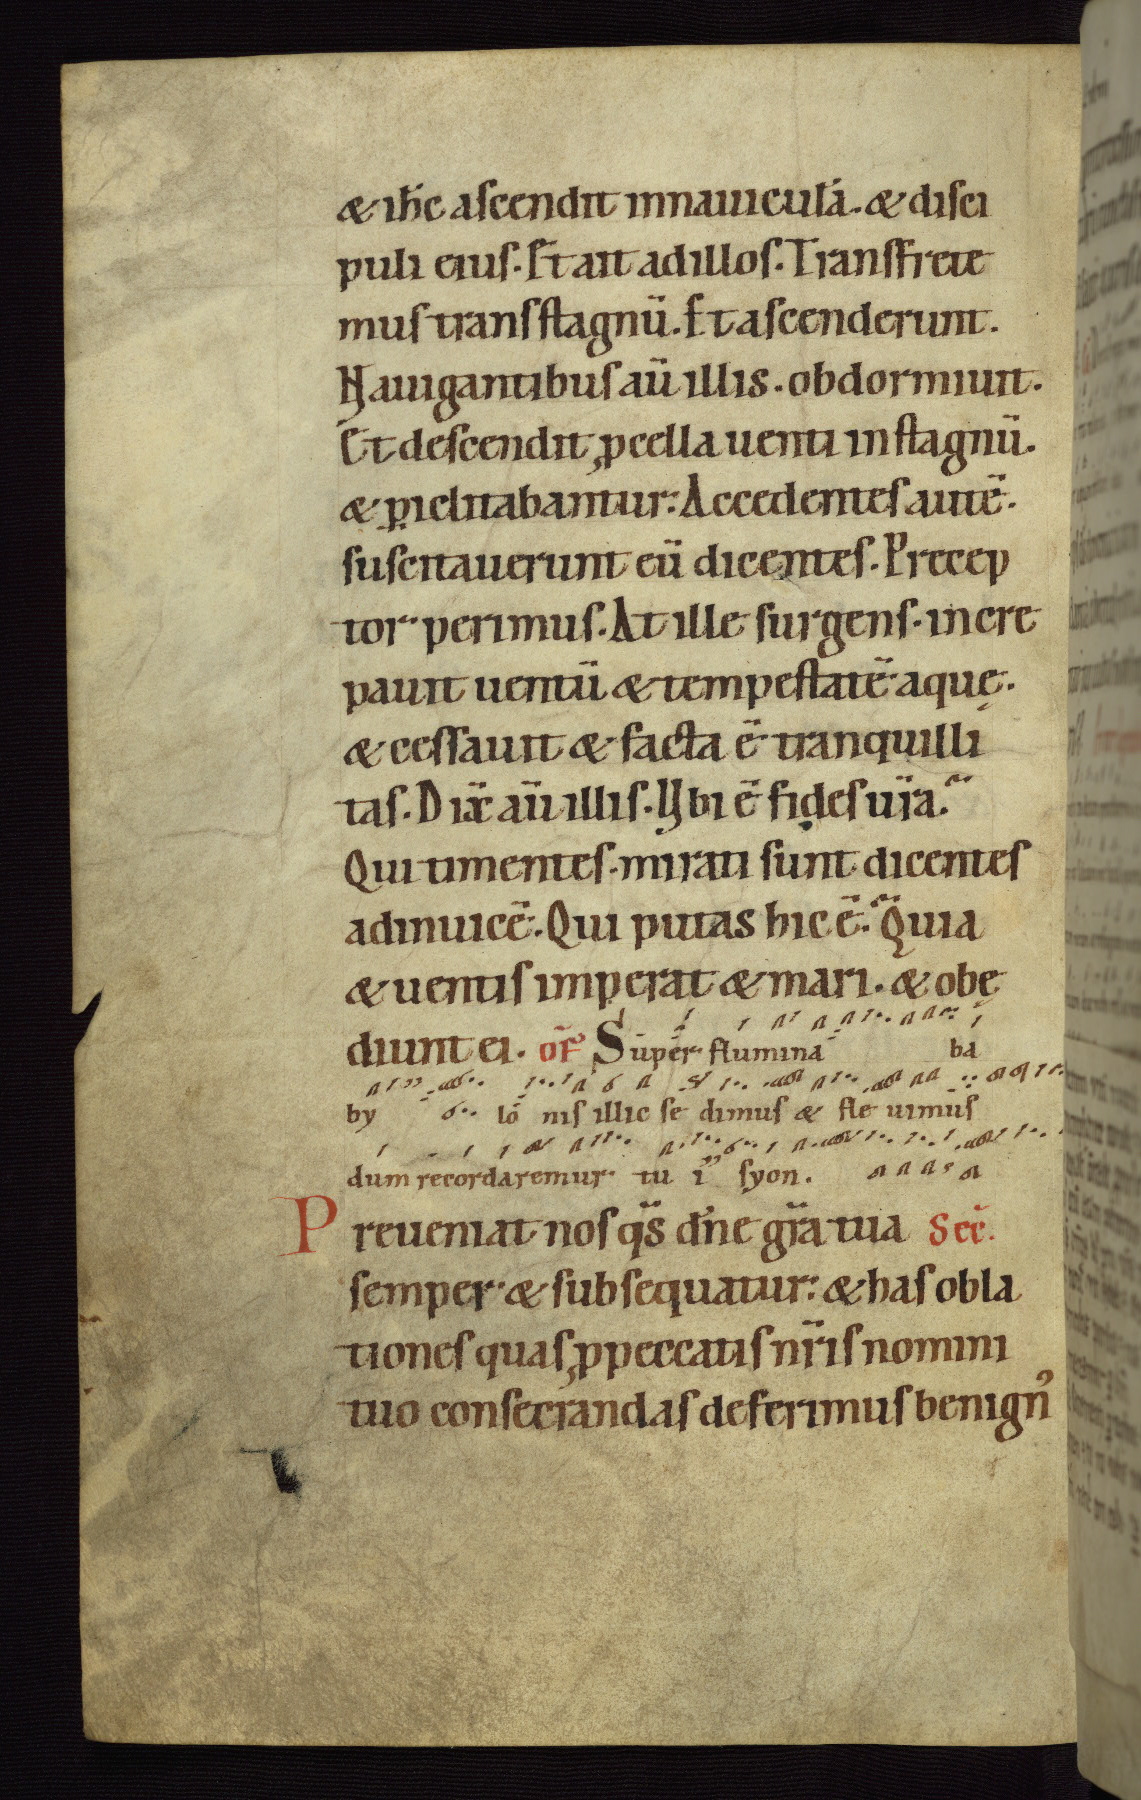 & ihc ascendit innauiculā. & disci
puli eius. Et ait adillos. Transfrete
mus trans stagnū. Et ascenderunt.
Nauigantibus aū illis. obdormiuit.
Et descendit ꝓcella uenti in stagnū.
& ꝑiclitabantur. Accedentes autē.
suscitauerunt eū dicentes. Precep
tor perimus. At ille surgens. incre
pauit uentū & tempestatē aquę.
& cessauit & facta ē tranquilli
tas. Dix̄ aū illis. Vbi ē fides ur̄a.
Qui timentes. mirati sunt dicentes
adinuicē. Qui putas hic ē. Quia
& uentis imperat & mari. & obę
diunt ei. of̄ Super flumina ba
by lo nis illic se dimus & fle uimus
dum recordaremur tu i syon.
Preueniat nos qs̄ dn̄e gr̄a tua Sec̄.
semper & subsequatur. & has obla
tiones quas ꝓ peccatis nr̄is nomini
tuo consecrandas deferimus benignꝰ